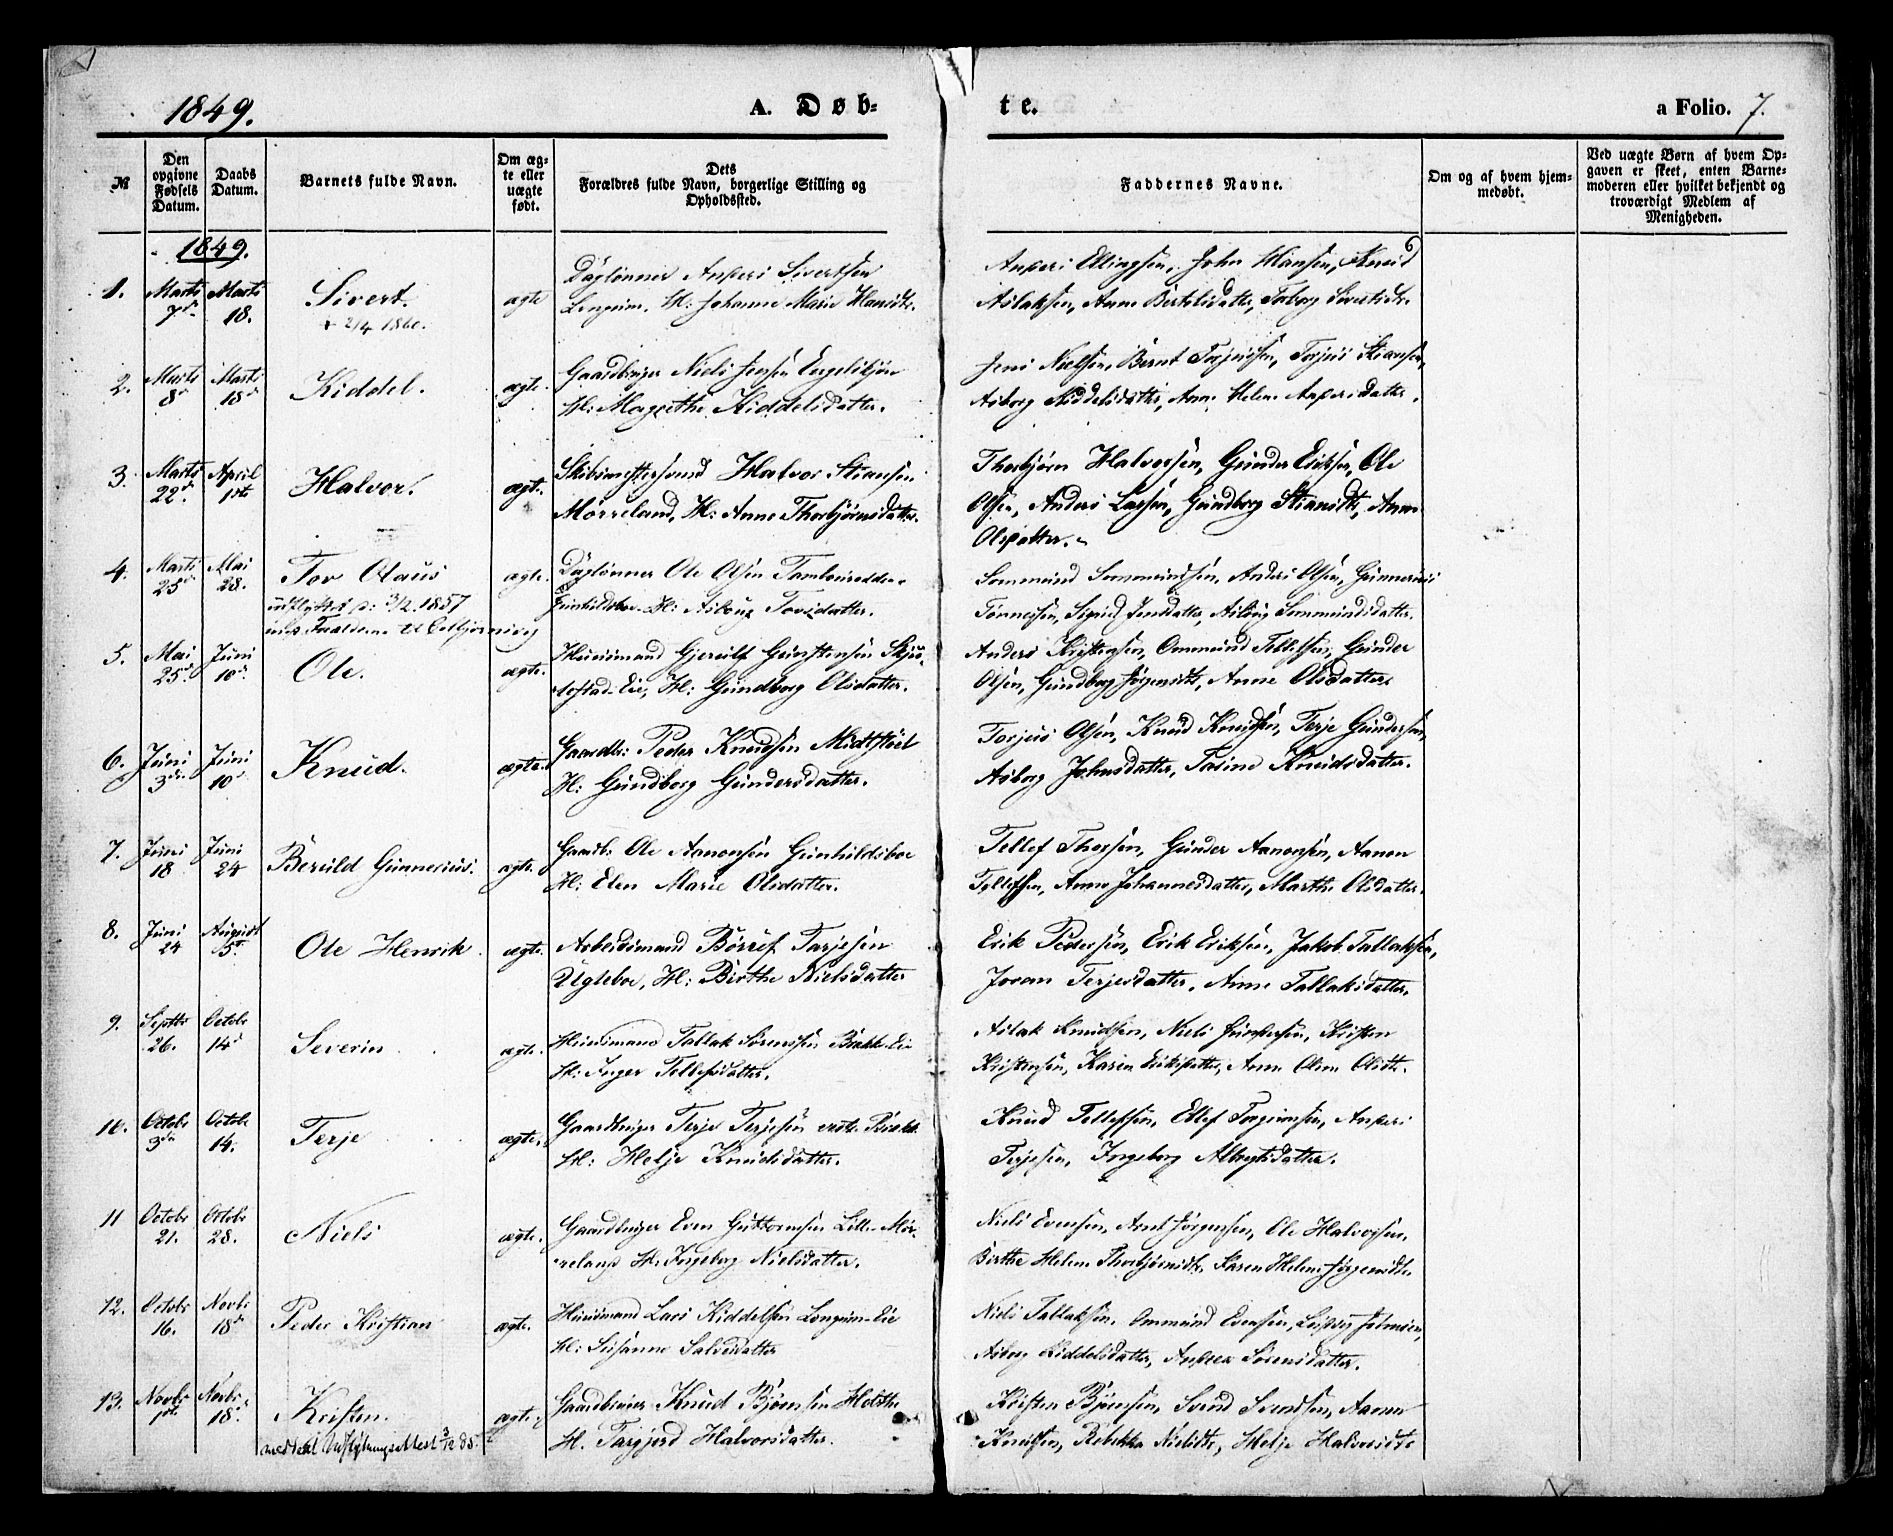 1849.
A. Døb-
te.
a Folio. 7.
№
Den opgivne Fødsels Datum.
Daabs Datum.
Barnets fulde Navn.
Om ægte eller uægte født.
Dets Forældres fulde Navn, borgerlige Stilling og Opholdssted.
Faddernes Navne.
Om og af hvem hjemmedøbt.
Ved uægte Børn af hvem Opgaven er skeet, enten Barnemoderen eller hvilket bekjendt og troværdigt Medlem af Menigheden.
1849.
1. Marts 7de Marts 18. Sivert. ægte Daglønner Anders Sivertsen
Longum. H: Johanne Marie Hansdtr.
+ 2/4 1860.
Anders Ellingsen, John Hansen, Knud
Aslaksen, Anne Bertelsdatter, Taaborg Sivertsdtr.
2. Marts 8de Marts 18de Kiddel. ægte. Gaardbruger Niels Jensen Engelskjøn
H: Magrethe Kiddelsdatter.
Jens Nielsen, Bernt Torjussen, Torjus Stiansen,
Asborg Kiddelsdatter, Anne Helene Andersdatter.
3. Marts 22de April 1ste Halvor. ægte. Skibsmattersvend Halvor Stiansen
Mørreland, H: Anne Thorbjørnsdatter.
Thorbjørn Halvorsen, Gunder Eriksen, Ole
Olsen, Anders Larsen, Gundborg Stiansdtr, Anne
Olsdatter.
4. Marts 25de Mai 28. Tov Olaus ægte. Daglønner Ole Olsen
Gunhildsboe. H: Aslaug Tovsdatter.
udflyttet d: 3/2 1857
Sommund Sommundsen, Anders Olsen, Gunnerius
Tønnessen, Sigrid Jensdatter, Aslaug Sommundsdatter.
5. Mai 25de Juni 10de Ole. ægte. Huusmand Gjerulf Gunstensen Skjus-
tostad-Eie, H: Gundborg Olsdatter.
Anders Kristensen, Ommund Tellefsen, Gunder
Olsen, Gundborg Jørgensdtr, Anne Olsdatter
6. Juni 3de Juni 10de Knud. ægte. Gaardbr: Peder Knudsen Midtstøel
H: Gundborg Gundersdatter.
Torjus Olsen, Knud Knudsen, Terje Gundersen,
Asborg Johnsdatter, Tasine Knudsdatter.
7. Juni 18 Juni 24 Beruld Gunnerius. ægte. Gaardb: Ole Aanonsen Gunhildsboe
H: Elen Marie Olsdatter.
Tellef Thorsen, Gunder Aanonsen, Aanon
Tellefsen, Anne Johannesdatter, Marthe Olsdatter.
8. Juni 24 August 5te Ole Henrik. ægte. Arbeidsmand Børuf Tarjesen
Ugleboe, H: Birthe Nielsdatter
Erik Pedersen, Erik Eriksen, Jakob Tallaksen,
Joran Terjesdatter, Anne Tallaksdatter.
9. Septbr 26. Octobr 14de Severin ægte. Huusmand Tallak Sørensen Birkh-Eie
H: Inger Tellefsdatter.
Aslak Knudsen, Niels Gundersen, Kristen
Kristensen, Karen Eriksdatter, Anne Olene Olsdtr.
10. Octobr 3de Octobr 14. Terje ægte. Gaardbruger Terje Terjesen
H: Helje Knudsdatter.
Knud Tellefsen, Ellef Torgrimsen, Anders
Terjesen, Ingeborg Albregtsdatter.
11 Octobr 21. Octobr 28. Niels ægte. Gaardbruger Even Guttormsen Lille-Mør-
reland H: Ingeborg Nielsdatter.
Niels Evensen, Arnt Jørgensen, Ole Halvorsen,
Birthe Helene Thorbjørnsdtr, Karen Helene Jørgensdtr.
12. Octobr 16. Novbr 18de Peder Kristian ægte. Huusmand Lars Kiddelsen Longum-Eie
H: Susanne Salvesdatter
Niels Tallaksen, Ommund Evensen, Ludvig Johnsen,
Asborg Kiddelsdatter, Andrea Sørensdatter.
13. Novbr 1ste Novbr 18de Kristen. ægte. Gaardbruger Knud Bjørnsen Holthe
H. Targjerd Halvorsdatter.
meddelt Udflytningsattest 3/12 85.
Kristen Bjørnsen, Svend Svendsen, Aanon
Knudsen, Rebekka Nielsdtr, Helje Halvorsdtr